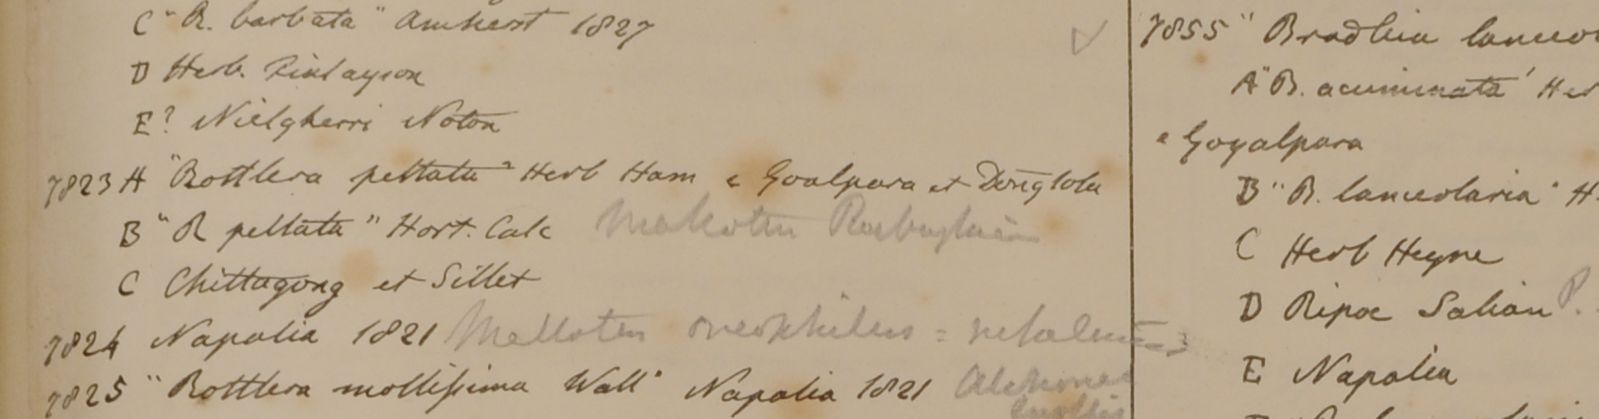 C "R. barbata" Amherst 1827
D Herb. Finlayson
E? Nielgherri Noton
7823 A "Rottlera peltata" Herb Ham e Goalpara et Donglola
B "R peltata" Hort. Calc Mallotus Roxburghianus
C Chittagong et Sillet
7824 Napalia 1821 Mallotus oreophilus = nepalensis
7825 "Rottlera mollissima Wall" Napalia 1821 mollis
7855 "Bradleia lanceol
A "B. acuminata" Her
e Goyalpara
B "B. lanceolaria" H.
C Herb Heyne
D Ripae Salian P.
E Napalia